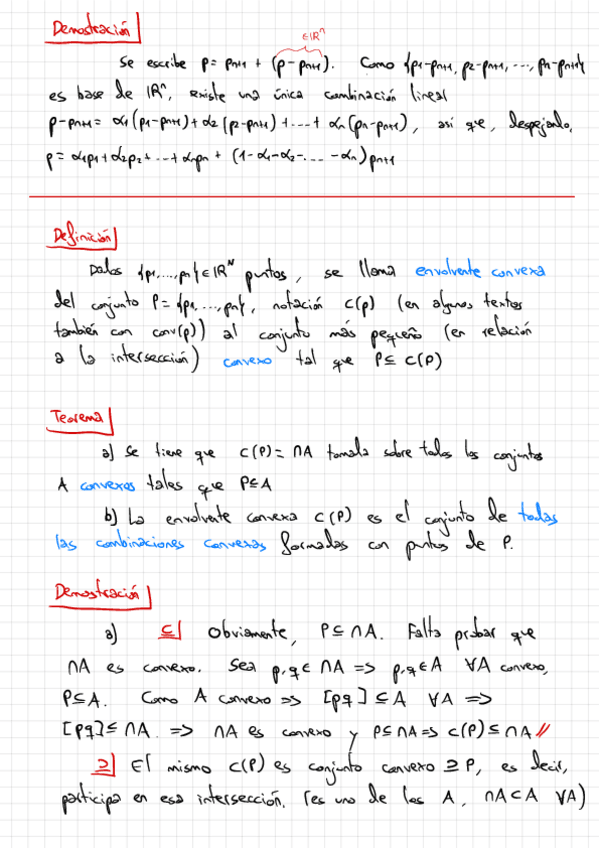 Demostración
∈ℝⁿ
Se escribe p = pₙ₊₁ + (p - pₙ₊₁). Como {p₁-pₙ₊₁, p₂-pₙ₊₁, ..., pₙ-pₙ₊₁}
es base de ℝⁿ, existe una única combinación lineal
p-pₙ₊₁ = α₁(p₁-pₙ₊₁) + α₂(p₂-pₙ₊₁) + ... + αₙ(pₙ-pₙ₊₁), así que, despejando,
p = α₁p₁ + α₂p₂ + ... + αₙpₙ + (1-α₁-α₂-... -αₙ)pₙ₊₁
Definición
Dados {p₁,...,pₙ} ∈ ℝᴺ puntos, se llama envolvente convexa
del conjunto P = {p₁, ..., pₙ}, notación C(p) (en algunos textos
también con conv(p)) al conjunto más pequeño (en relación
a la intersección) convexo tal que P ⊆ C(P)
Teorema
a) Se tiene que C(P) = ∩A tomada sobre todos los conjuntos
A convexos tales que P⊆A
b) La envolvente convexa C(P) es el conjunto de todas
las combinaciones convexas formadas con puntos de P.
Demostración
a) ⊆| Obviamente, P ⊆ ∩A. Falta probar que
∩A es convexo. Sea p,q ∈ ∩A => p,q ∈ A ∀A convexo,
P⊆A. Como A convexo => [pq] ⊆ A ∀A =>
[pq] ⊆ ∩A. => ∩A es convexo y P⊆∩A => C(P) ⊆ ∩A //
⊇| El mismo C(P) es conjunto convexo ⊇ P, es decir,
participa en esa intersección. (es uno de los A, ∩A⊂A ∀A)